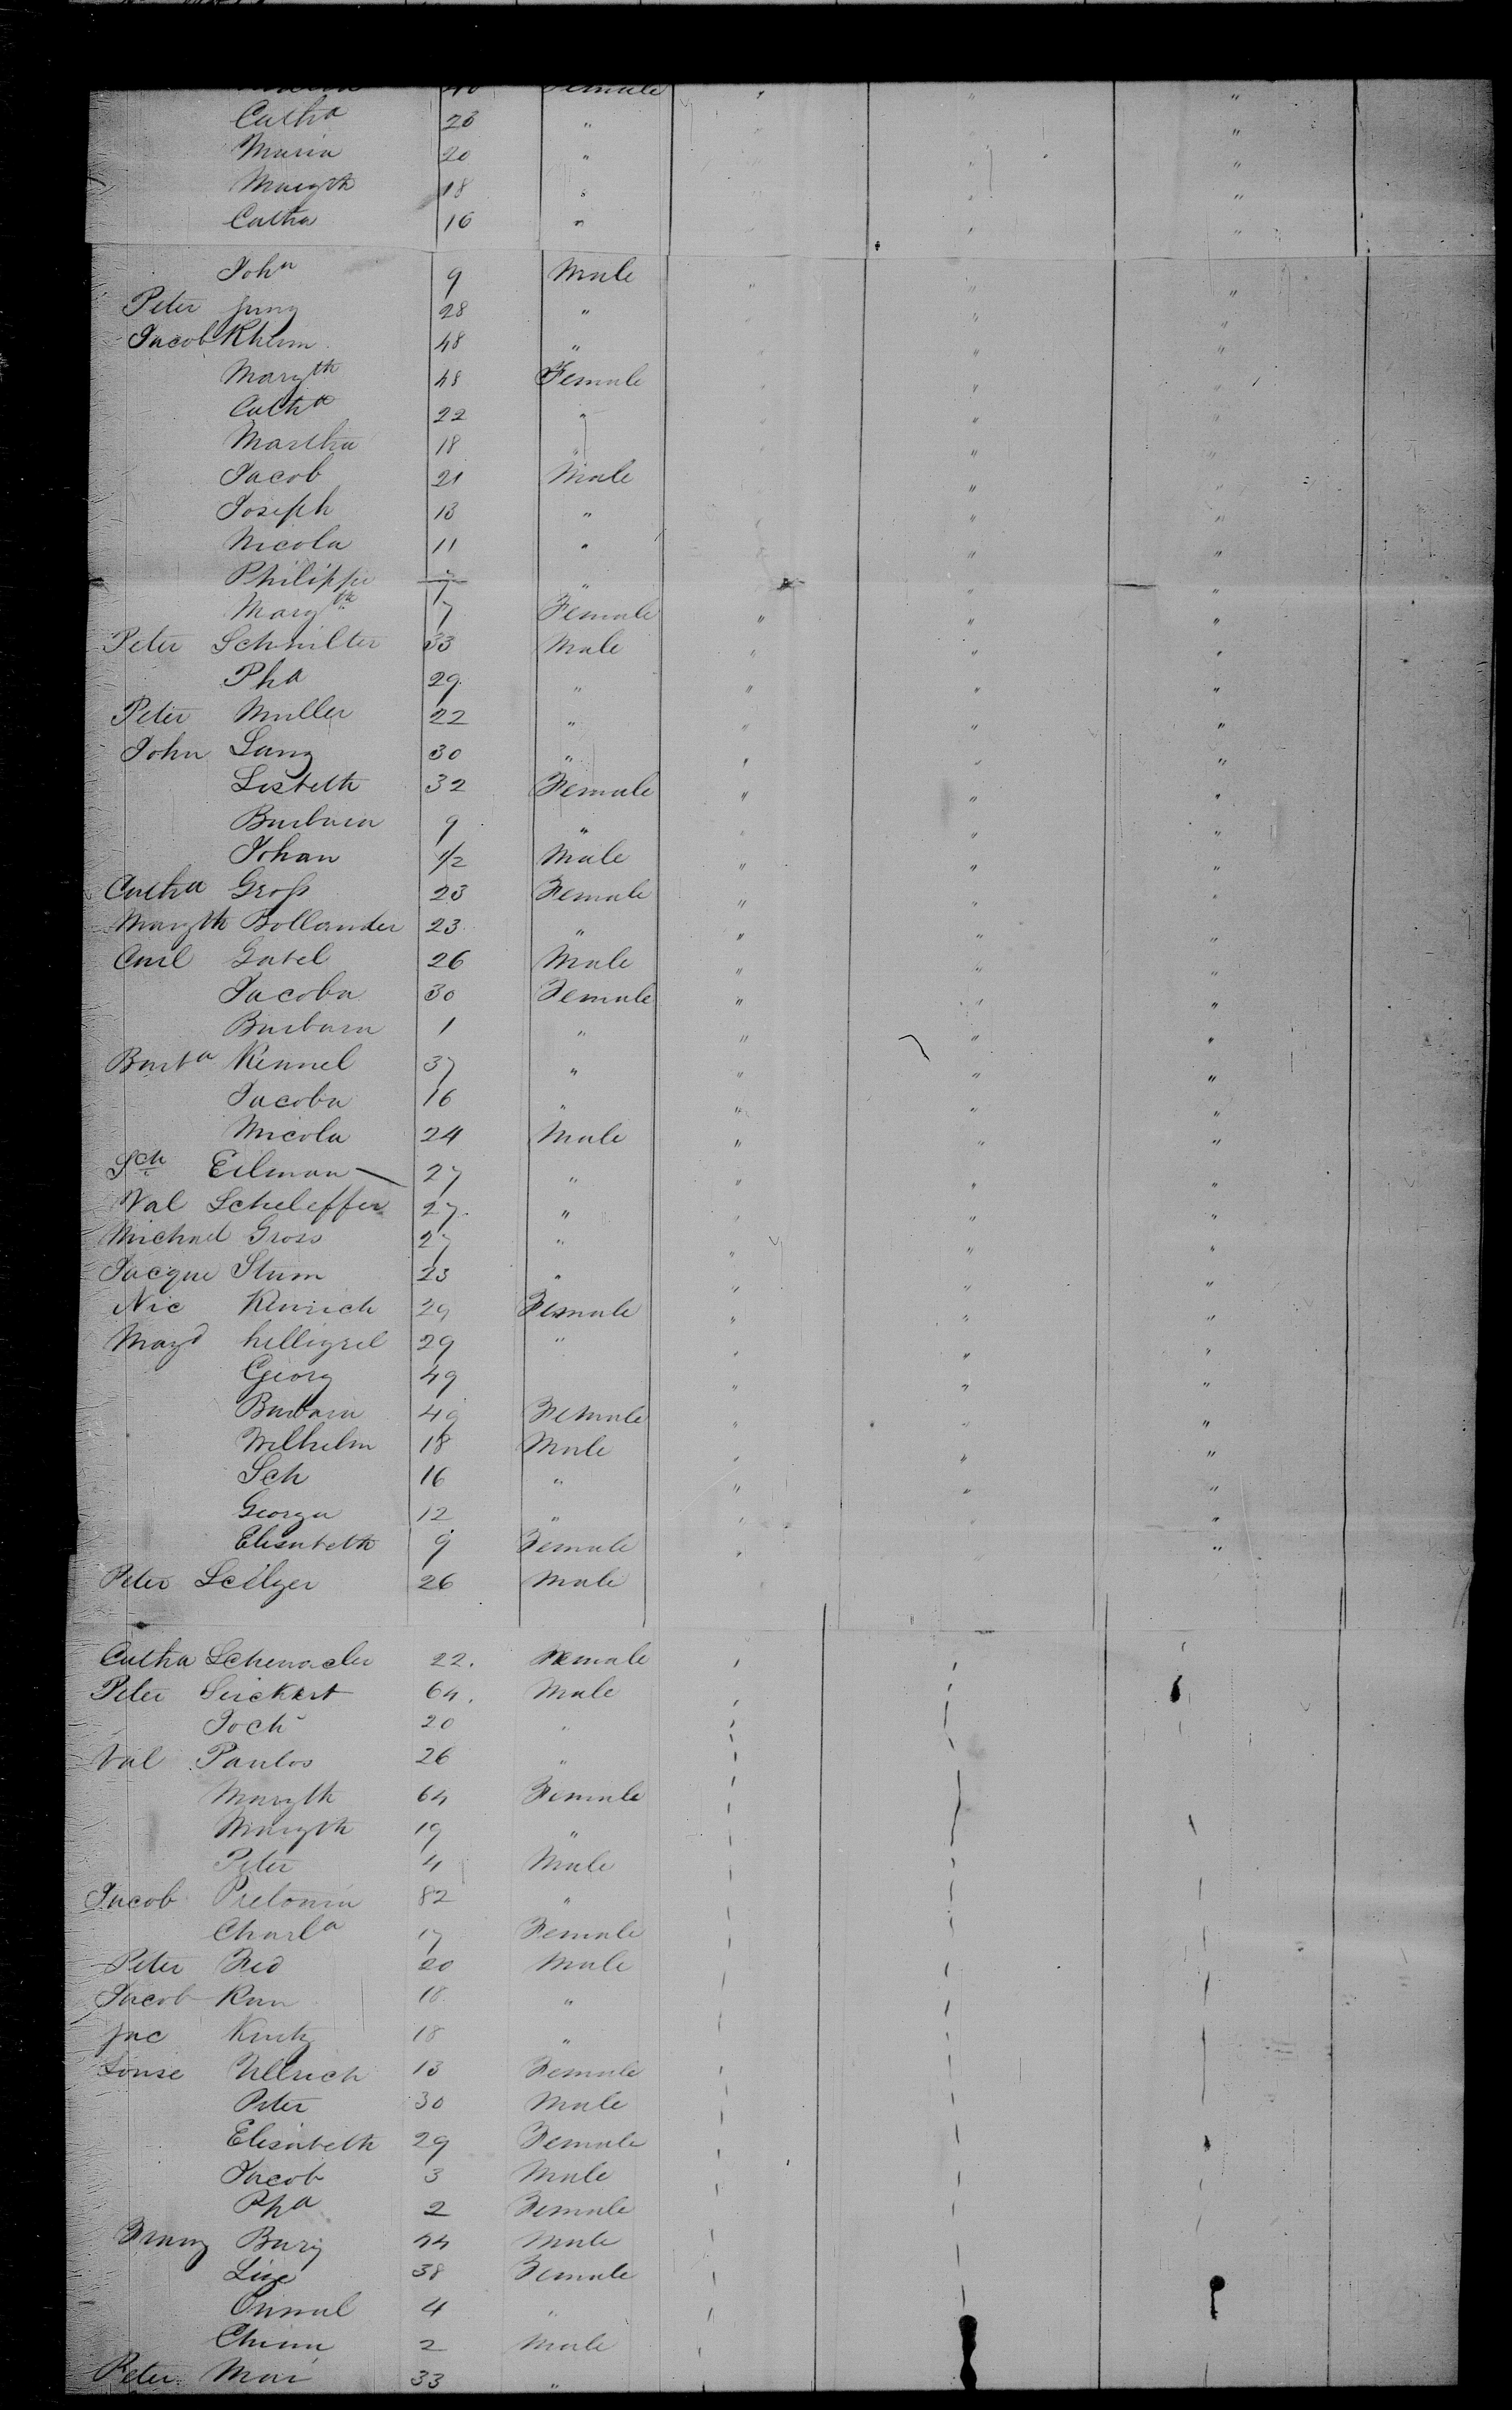 40 Female " " "
Cath a 26 " "
Maria 20 " " "
Margth 18 " " "
Catha 16 " " "
John 9 Male " " "
Peter Jung 28 " " "
Jacob Rheim 48 " " "
Margth 48 Female "
Catha 22 " "
Martha 18 " "
Jacob 21 Male " "
Joseph 13 " " "
Nicola 11 " " "
Philippe 7 " " "
Margth 7 Female " " "
Peter Schmilter 33 Male " " "
Pha 29 " " " "
Peter Muller 22 " " " "
John Lang 30 " " " "
Lisbeth 32 Female " " "
Barbara 9 " " " "
Johan 1/2 Male " " "
Catha Groß 23 Female " " "
Margth Bollander 23 " " " "
Carl Gatel 26 Male " " "
Jacoba 30 Female " " "
Barbara 1 " " " "
Barba Kennel 37 " " " "
Jacoba 16 " " " "
Nicola 24 Male " " "
Sch Eilman 27 " " " "
Val Scheleffer 27 " " " "
Michael Gross 27 " " " "
Jacque Stum 23 " " " "
Nic Kenrich 29 Female " " "
Magd helligrel 29 " " " "
Georg 49 " " "
Barbara 49 Female " " "
Wilhelm 18 Male " " "
Sch 16 " " " "
Georga 12 " " "
Elisabeth 9 Female " "
Peter Seilger 26 Male
Catha 22. Female
Peter Seickert 64. Male
Joch 20 "
Val Paulos 26 "
Margth 64 Female
Margth 19 "
Peter 4 Male
Jacob 82 "
Charla 17 Female
Peter Fred 20 Male
Jacob Rau 18 "
Jac Kurtz 18 "
Louise Ullrich 13 Female
Peter 30 Male
Elisabeth 29 Female
Jacob 3 Male
Pha 2 Female
Franz Bary 44 Male
Lise 38 Female
4 "
2 Male
Peter Mai 33 "